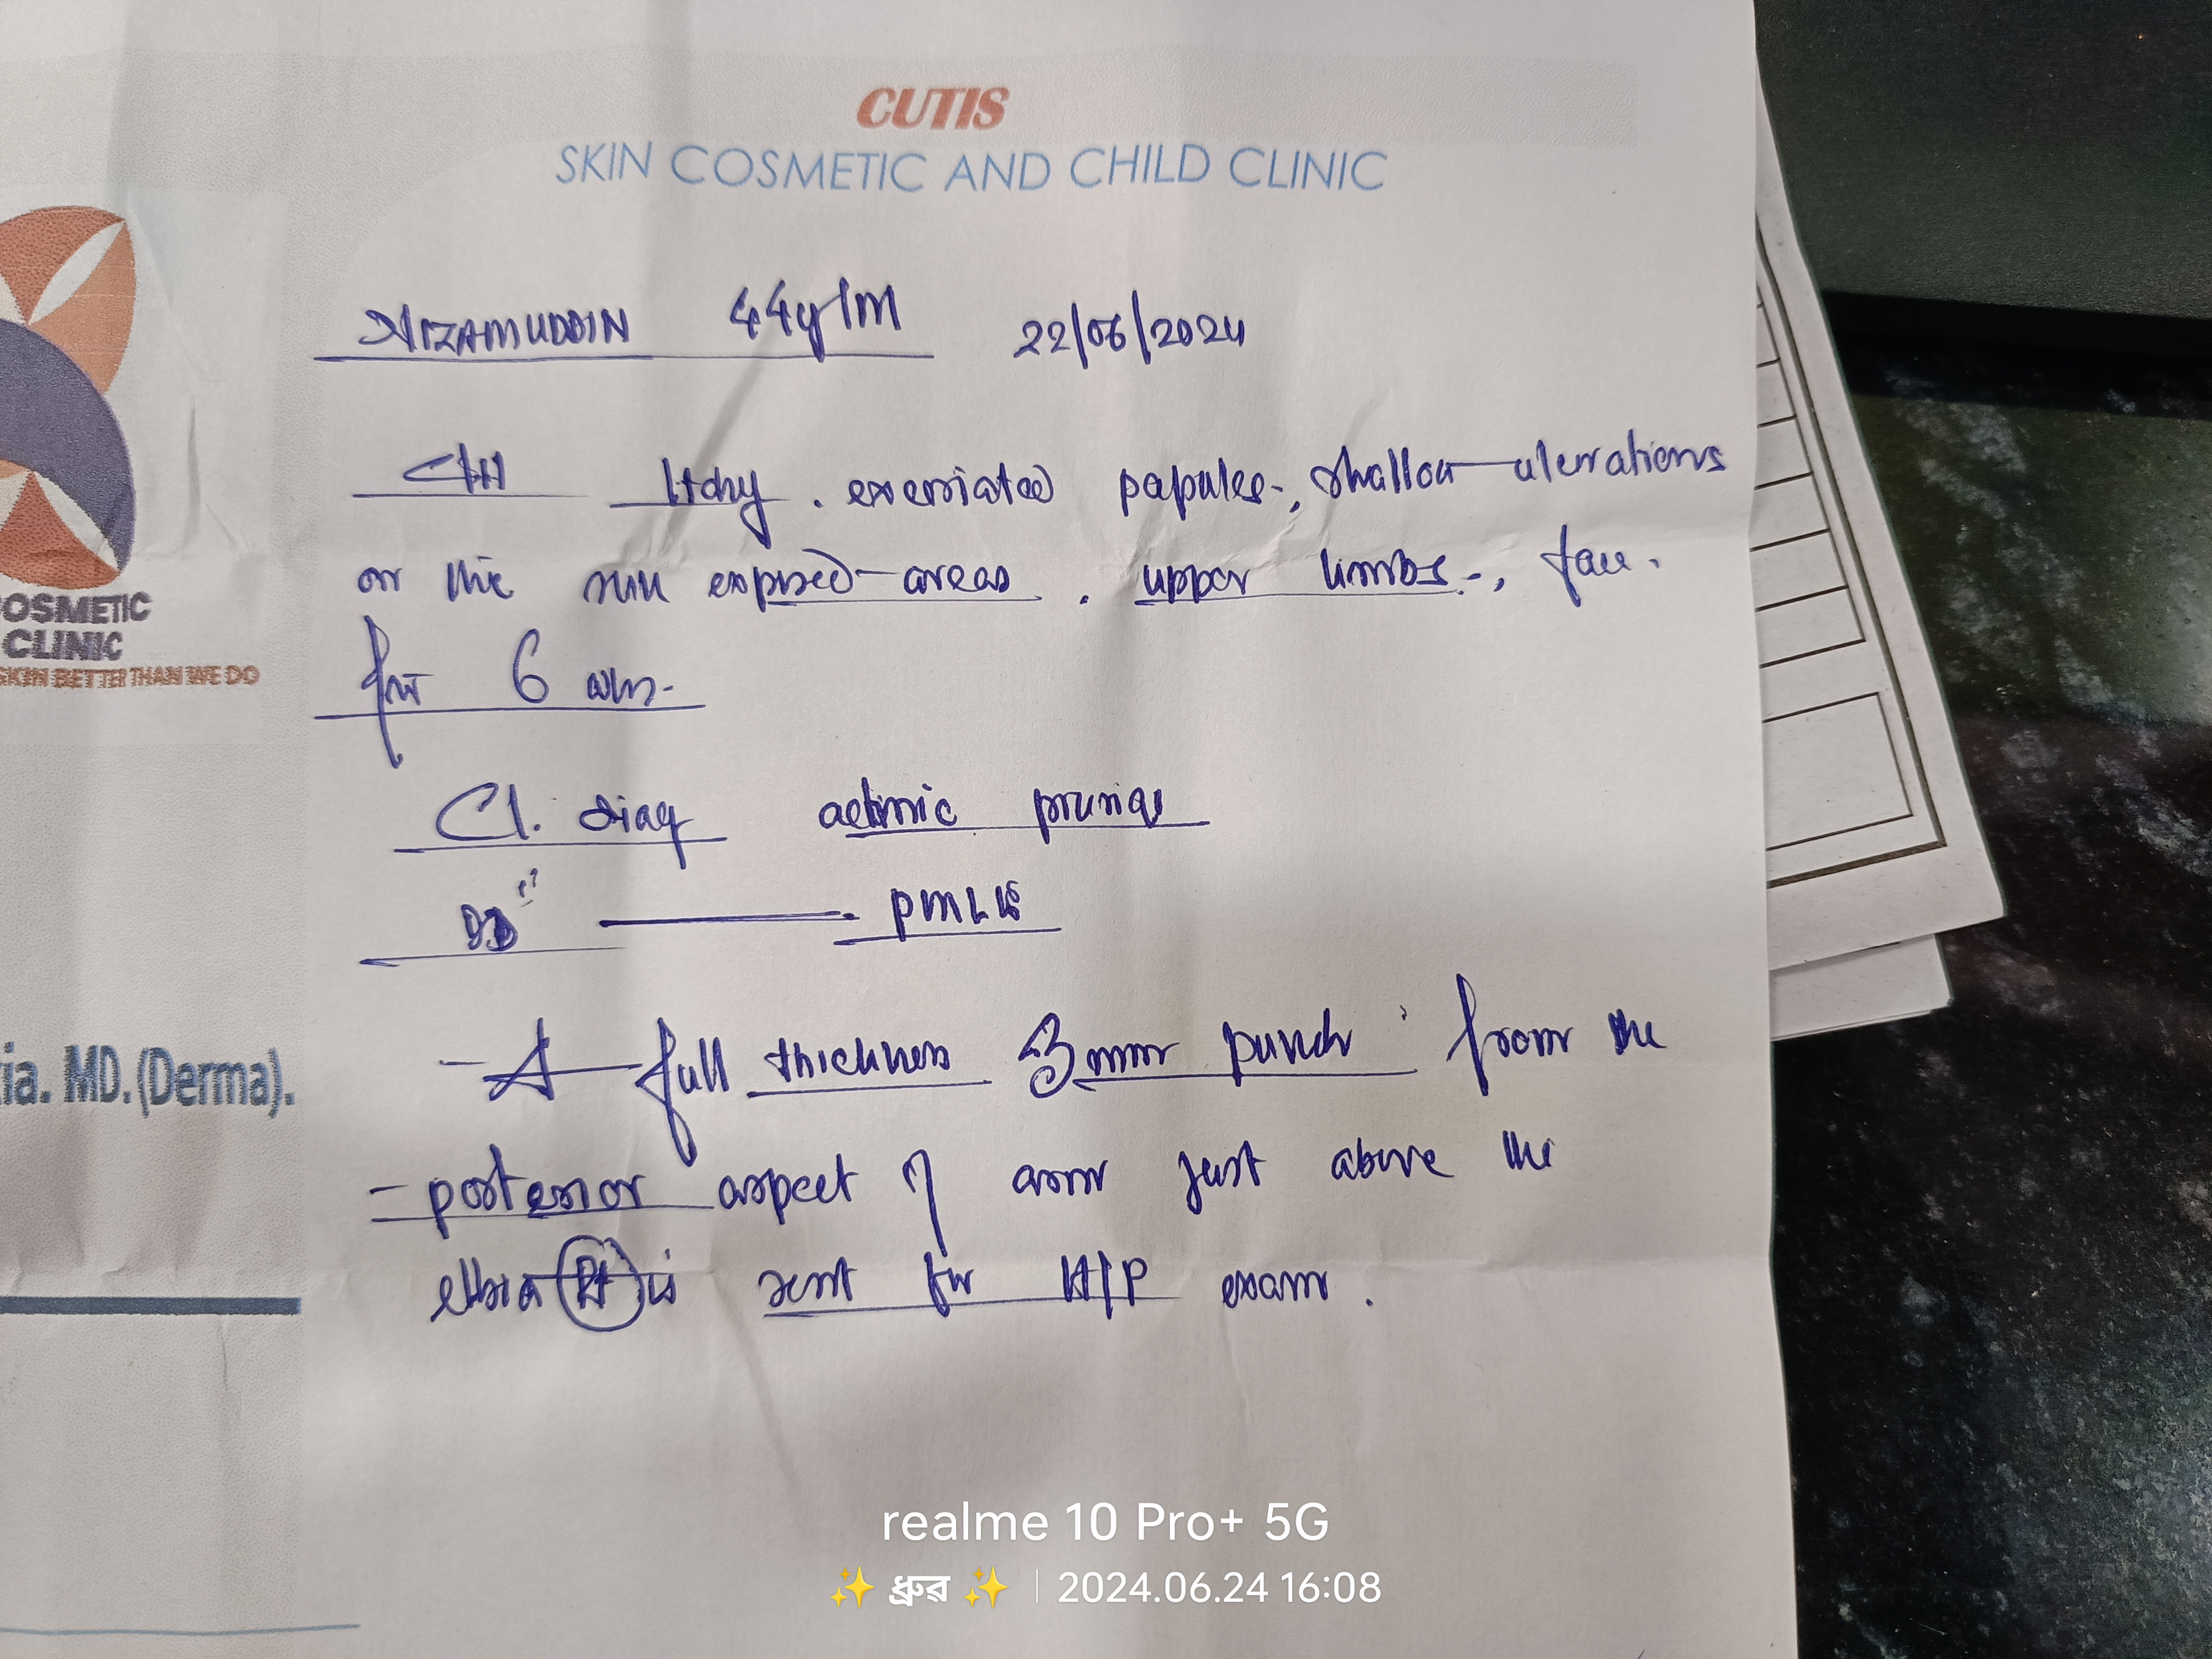 CUTIS
SKIN COSMETIC AND CHILD CLINIC
NIZAMUDDIN 44y/M 22/06/2024
C/H Itchy . excoriated papules, shallow ulcerations
on the sun exposed areas . upper limbs, face.
for 6 wks.
Cl. diag actinic prurigo
DD PMLE
A full thickness 3mm punch from the
posterior aspect of arm just above the
elbow (Rt) is sent for H/P exam.
OSMETIC
CLINIC
SKIN BETTER THAN WE DO
ia. MD. (Derma).
realme 10 Pro+ 5G
✨ ধ্রুৱ ✨ | 2024.06.24 16:08